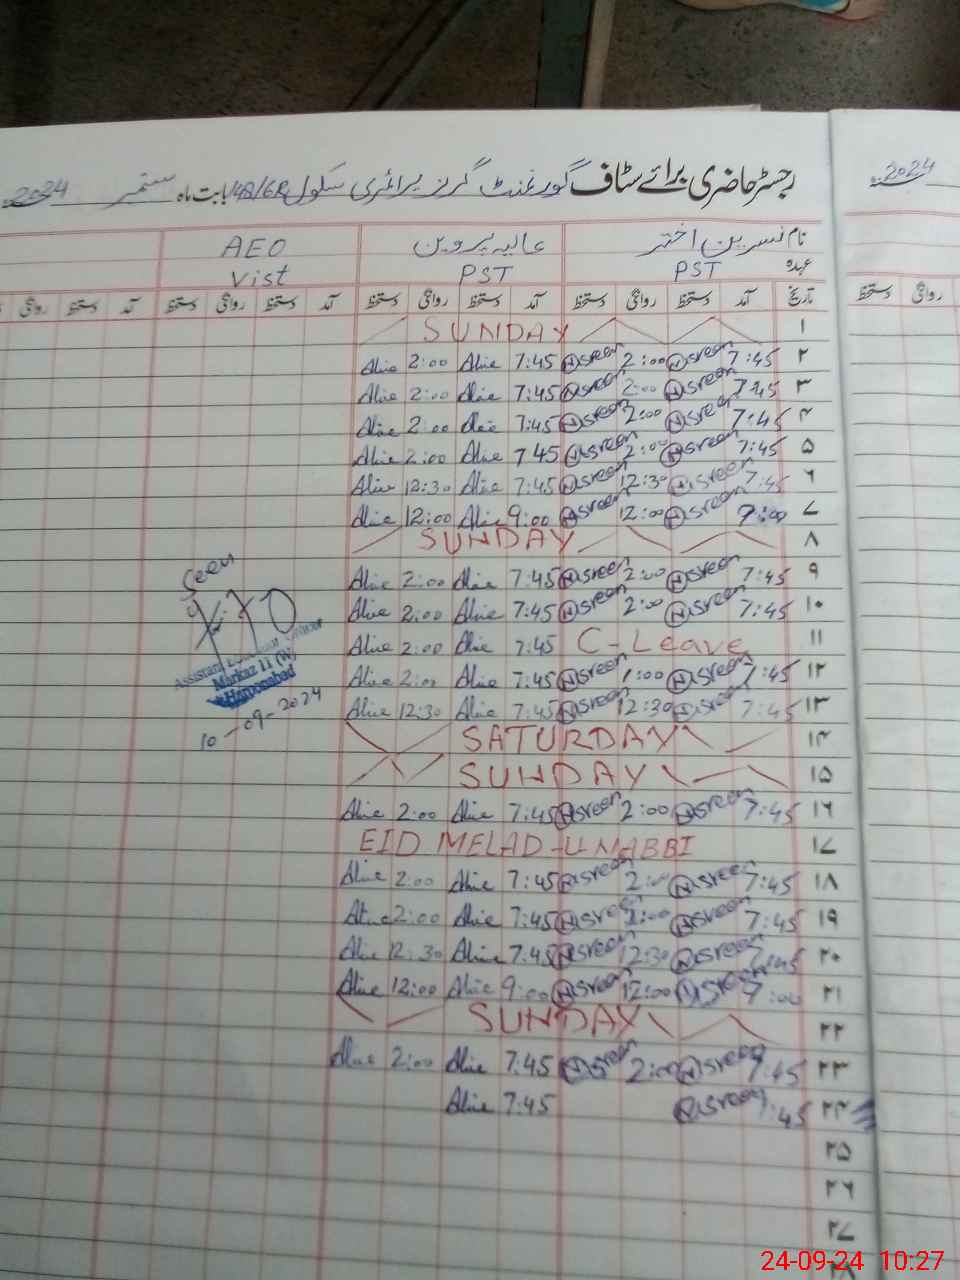 رجسٹر حاضری برائے سٹاف گورنمنٹ گرلز پرائمری سکول 148/6R بابت ماہ ستمبر 2024ء
2024ء
نام نسرین اختر عالیہ پروین AEO
عہدہ PST PST Vist
تاریخ آمد دستخط روانگی دستخط آمد دستخط روانگی دستخط آمد دستخط روانگی دستخط آمد دستخط روانگی
روانگی دستخط
۱ SUNDAY
۲ 7:45 Nasreen 2:00 Nasreen 7:45 Alia 2:00 Alia
۳ 7:45 Nasreen 2:00 Nasreen 7:45 Alia 2:00 Alia
۴ 7:45 Nasreen 2:00 Nasreen 7:45 Alia 2:00 Alia
۵ 7:45 Nasreen 2:00 Nasreen 7 45 Alia 2:00 Alia
۶ 7:45 Nasreen 12:30 Nasreen 7:45 Alia 12:30 Alia
۷ 9:00 Nasreen 12:00 Nasreen 9:00 Alia 12:00 Alia
۸ SUNDAY
۹ 7:45 Nasreen 2:00 Nasreen 7:45 Alia 2:00 Alia
۱۰ 7:45 Nasreen 2:00 Nasreen 7:45 Alia 2:00 Alia
۱۱ C-Leave 7:45 Alia 2:00 Alia
۱۲ 7:45 Nasreen :00 Nasreen 7:45 Alia 2:00 Alia
۱۳ 7:45 Nasreen 12:30 Nasreen 7:45 Alia 12:30 Alia
۱۴ SATURDAY
۱۵ SUNDAY
۱۶ 7:45 Nasreen 2:00 Nasreen 7:45 Alia 2:00 Alia
۱۷ EID MELAD-UNABBI
۱۸ 7:45 Nasreen 2:00 Nasreen 7:45 Alia 2:00 Alia
۱۹ 7:45 Nasreen 2:00 Nasreen 7:45 Alia 2:00 Alia
۲۰ 7:45 Nasreen 12:30 Nasreen 7:45 Alia 12:30 Alia
۲۱ 9:00 Nasreen 12:00 Nasreen 9:00 Alia 12:00 Alia
۲۲ SUNDAY
۲۳ 7:45 Nasreen 2:00 Nasreen 7:45 Alia 2:00 Alia
۲۴ 7:45 Nasreen 7:45 Alia
۲۵
۲۶
۲۷
۲۸
Seen
Assistant Education Officer
Markaz 11 (W)
Haroonabad
10-09-2024
24-09-24 10:27